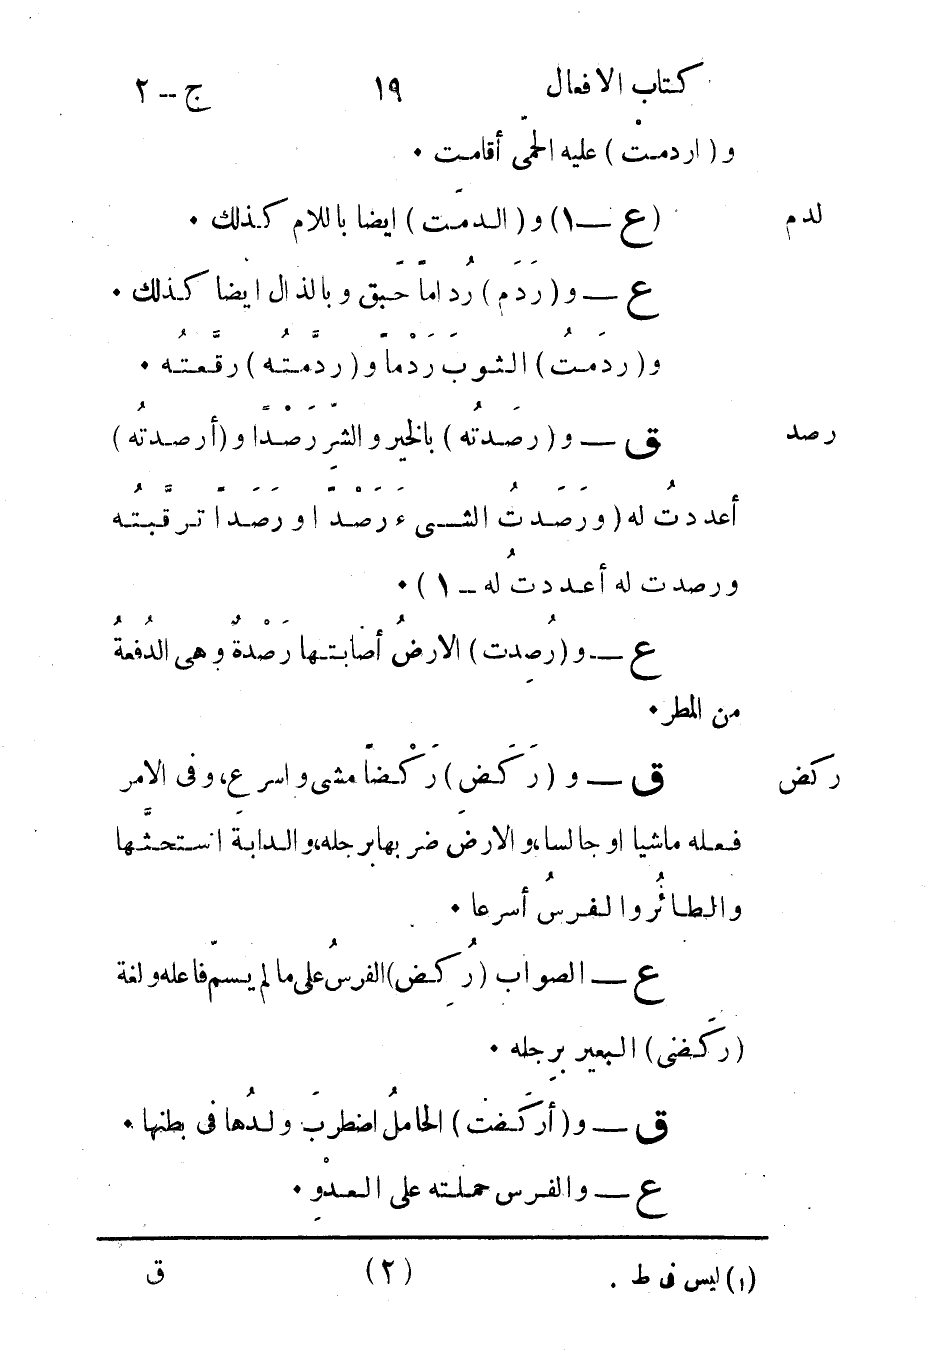 كتاب الافعال ١٩ ج -- ٢
و ( اردمتْ ) عليه الحمّى أقامت •
لدم (ع — ١) و ( الدمّت ) ايضا باللام كذلك •
ع — و ( رَدَم ) رُداماً حبَق وبالذال ايضا كذلك •
و ( ردَمتُ ) الثوبَ رَدْماً و ( ردَّمتُه ) رقَّعتُه •
رصد ق — و ( رصَدتُه ) بالخير والشرِّ رَصْداً و ( أرصدتُه )
أعددتُ له ( ورَصَدتُ الشىء رَصْداً ورَصَداً ترقَّبتُه
ورصدت له أعددتُ له – ١ ) •
ع — و ( رُصِدت ) الارضُ أصابتها رَصْدةٌ وهى الدُفعةُ
من المطر •
ركض ق — و ( رَكَض ) رَكْضاً مشى واسرع، وفى الامر
فعله ماشيا او جالسا، والارضَ ضربها برجله، والدابةَ استحثَّها
والطائرُ والفرسُ أسرعا •
ع — الصواب ( رُكِض ) الفرسُ على ما لم يسمّ فاعله ولغة
( ركَضنى ) البعير برِجله •
ق — و ( أركَضت ) الحاملُ اضطربَ ولدُها فى بطنها •
ع — والفرس حملته على العدْوِ •
(١) ليس فى ط . (٢) ق